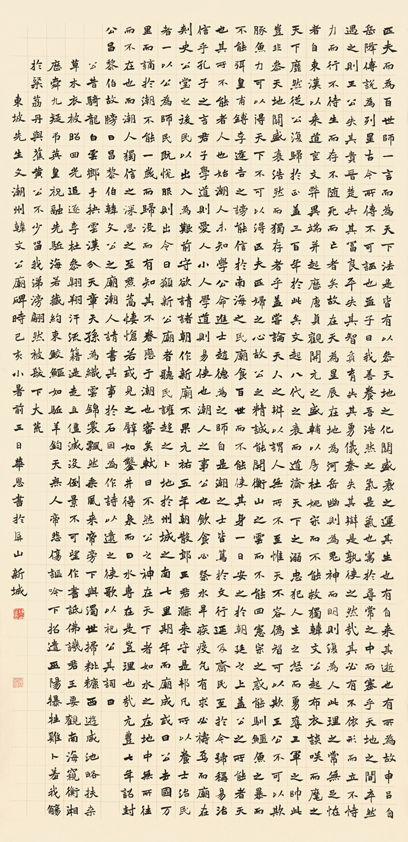 匹夫而為百世師一言而為天下法是皆有以參天地之化關盛衰之運其生也有自來其逝也有所為故申呂自
岳降傅說為列星古今所傳不可誣也孟子曰我善養吾浩然之氣是氣也寓於尋常之中而塞乎天地之間卒然
遇之則王公失其貴晉楚失其富良平失其智賁育失其勇儀秦失其辯是孰使之然哉其必有不依形而立不恃
力而行不待生而存不隨死而亡者矣故在天為星辰在地為河岳幽則為鬼神而明則復為人此理之常無足怪
者自東漢以來道喪文弊異端並起歷唐貞觀開元之盛輔以房杜姚宋而不能救獨韓文公起布衣談笑而麾之
天下靡然從公復歸於正蓋三百年於此矣文起八代之衰而道濟天下之溺忠犯人主之怒而勇奪三軍之帥此
豈非參天地關盛衰浩然而獨存者乎蓋嘗論天人之辨以謂人無所不至惟天不容偽智可以欺王公不可以欺
豚魚力可以得天下不可以得匹夫匹婦之心故公之精誠能開衡山之雲而不能回憲宗之惑能馴鱷魚之暴而
不能弭皇甫鎛李逢吉之謗能信於南海之民廟食百世而不能使其身一日安之於朝廷之上蓋公之所能者天
也其所不能者人也始潮人未知學公命進士趙德為之師自是潮之士皆篤於文行延及齊民至於今號稱易治
信乎孔子之言君子學道則愛人小人學道則易使也潮人之事公也飲食必祭水旱疾疫凡有求必禱焉而廟在
刺史公堂之後民以出入為艱前守欲請諸朝作新廟不果元祐五年朝散郎王君滌來守是邦凡所以養士治民
者一以公為師民既悅服則出令曰願新公廟者聽民讙趨之卜地於州城之南七里期年而廟成或曰公去國萬
里而謫於潮不能一歲而歸沒而有知其不眷戀於潮也審矣軾曰不然公之神在天下者如水之在地中無所往
而不在也而潮人獨信之深思之至焄蒿悽愴若或見之譬如鑿井得泉而曰水專在是豈理也哉元豐七年詔封
公昌黎伯故榜曰昌黎伯韓文公之廟潮人請書其事於石因為作詩以遺之使歌以祀公其詞曰
公昔騎龍白雲鄉手抉雲漢分天章天孫為織雲錦裳飄然乘風來帝旁下與濁世掃秕糠西遊咸池略扶桑
草木衣被昭回光追逐李杜參翱翔汗流籍湜走且僵滅沒倒景不可望作書詆佛譏君王要觀南海窺衡湘
歷舜九疑弔英皇祝融先驅海若藏約束鮫鱷如驅羊鈞天無人帝悲傷謳吟下招遣巫陽犦牲雞卜羞我觴
於粲荔丹與蕉黃公不少留我涕滂翩然被髮下大荒
東坡先生文潮州韓文公廟碑時己亥小暑前三日華恩書於屏山新城